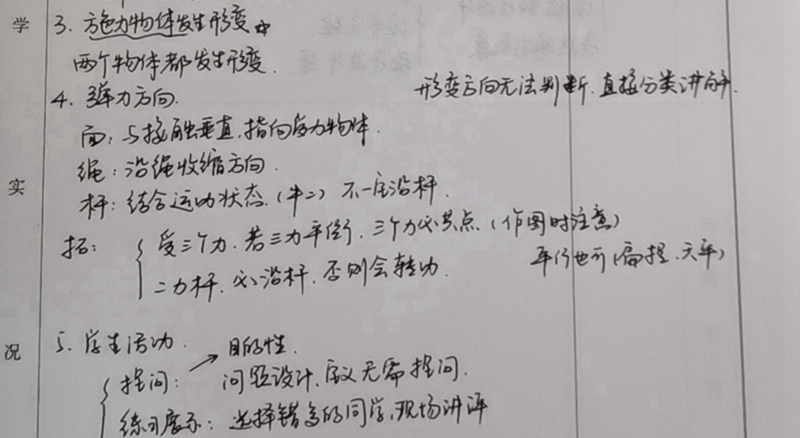 学
3. 施力物体发生形变
两个物体都发生形变.
4. 弹力方向.
形变方向无法判断.直接分类讲解.
面: 与接触垂直.指向受力物体.
绳: 沿绳收缩方向.
实
杆: 结合运动状态.(牛二) 不一定沿杆.
拓: 受三个力.若三力平衡,三个力必共点(作图时注意)
平行也可(扁担、天平)
二力杆,必沿杆,否则会转动.
况
5. 学生活动. 目的性.
提问: 问题设计,定义无需提问.
练习展示: 选择错多的同学,现场讲评